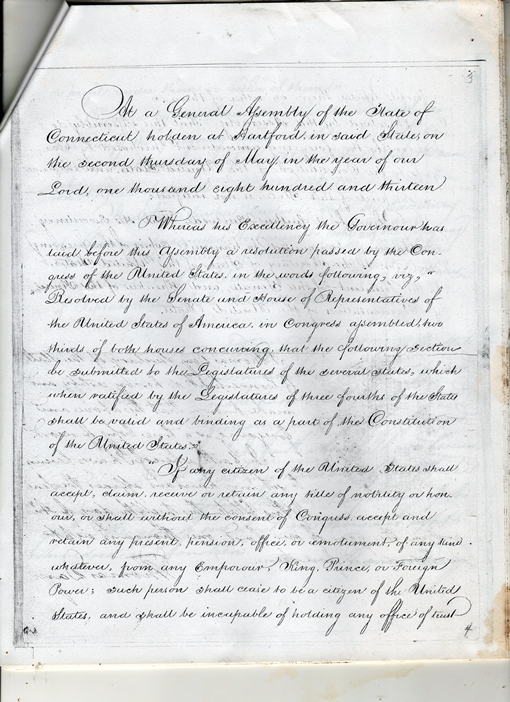 3
At a General Assembly of the State of
Connecticut holden at Hartford, in said State, on
the second thursday of May, in the year of our
Lord, one thousand eight hundred and thirteen
Whereas his Excellency the Governour has
laid before this Assembly a resolution passed by the Con-
gress of the United States, in the words following, viz, "
Resolved by the Senate and House of Representatives of
the United States of America, in Congress assembled, two
thirds of both houses concurring, that the following section
be submitted to the Legislatures of the several states, which
when ratified by the Legislatures of three fourths of the States
shall be valid and binding as a part of the Constitution
of the United States."
"If any citizen of the United States shall
accept, claim, receive or retain any title of nobility or hon-
our, or shall without the consent of Congress, accept and
retain any present, pension, office, or emolument, of any kind
whatever, from any Emporour, King, Prince, or Foreign
Power; such person shall cease to be a citizen of the United
States, and shall be incapable of holding any office of trust
4